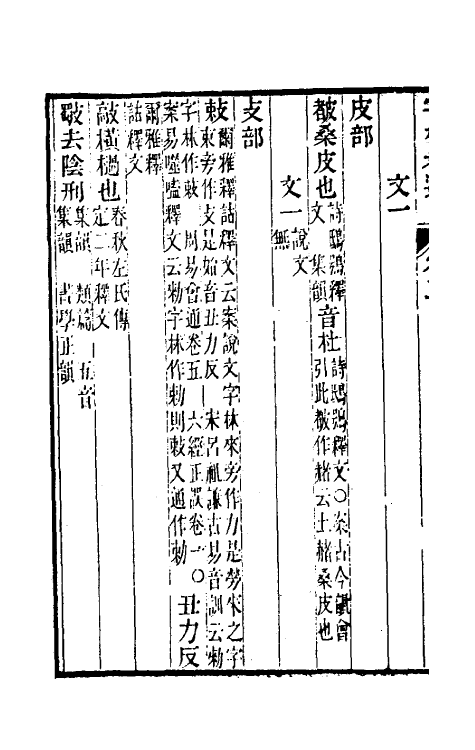 文一
皮部
桑皮也詩鴟鴞釋
文 集韻音杜詩鴟鴞釋文〇案古今韻會
引此㪇作赭云土赭桑皮也
文一說文
無
攴部
敕爾雅釋詁釋文云案說文字林來旁作力是勞來之字
東旁作攴是始音丑力反 宋呂祖謙古易音訓云勑
字林作敕 周易會通卷五 六經正誤卷一〇
案易噬嗑釋文云勑字林作勅則敕又通作勅丑力反
爾雅釋
詁釋文
敲橫檛也春秋左氏傳
定二年釋文
斀去陰刑集韻 類篇 五音
集韻 書學正韻